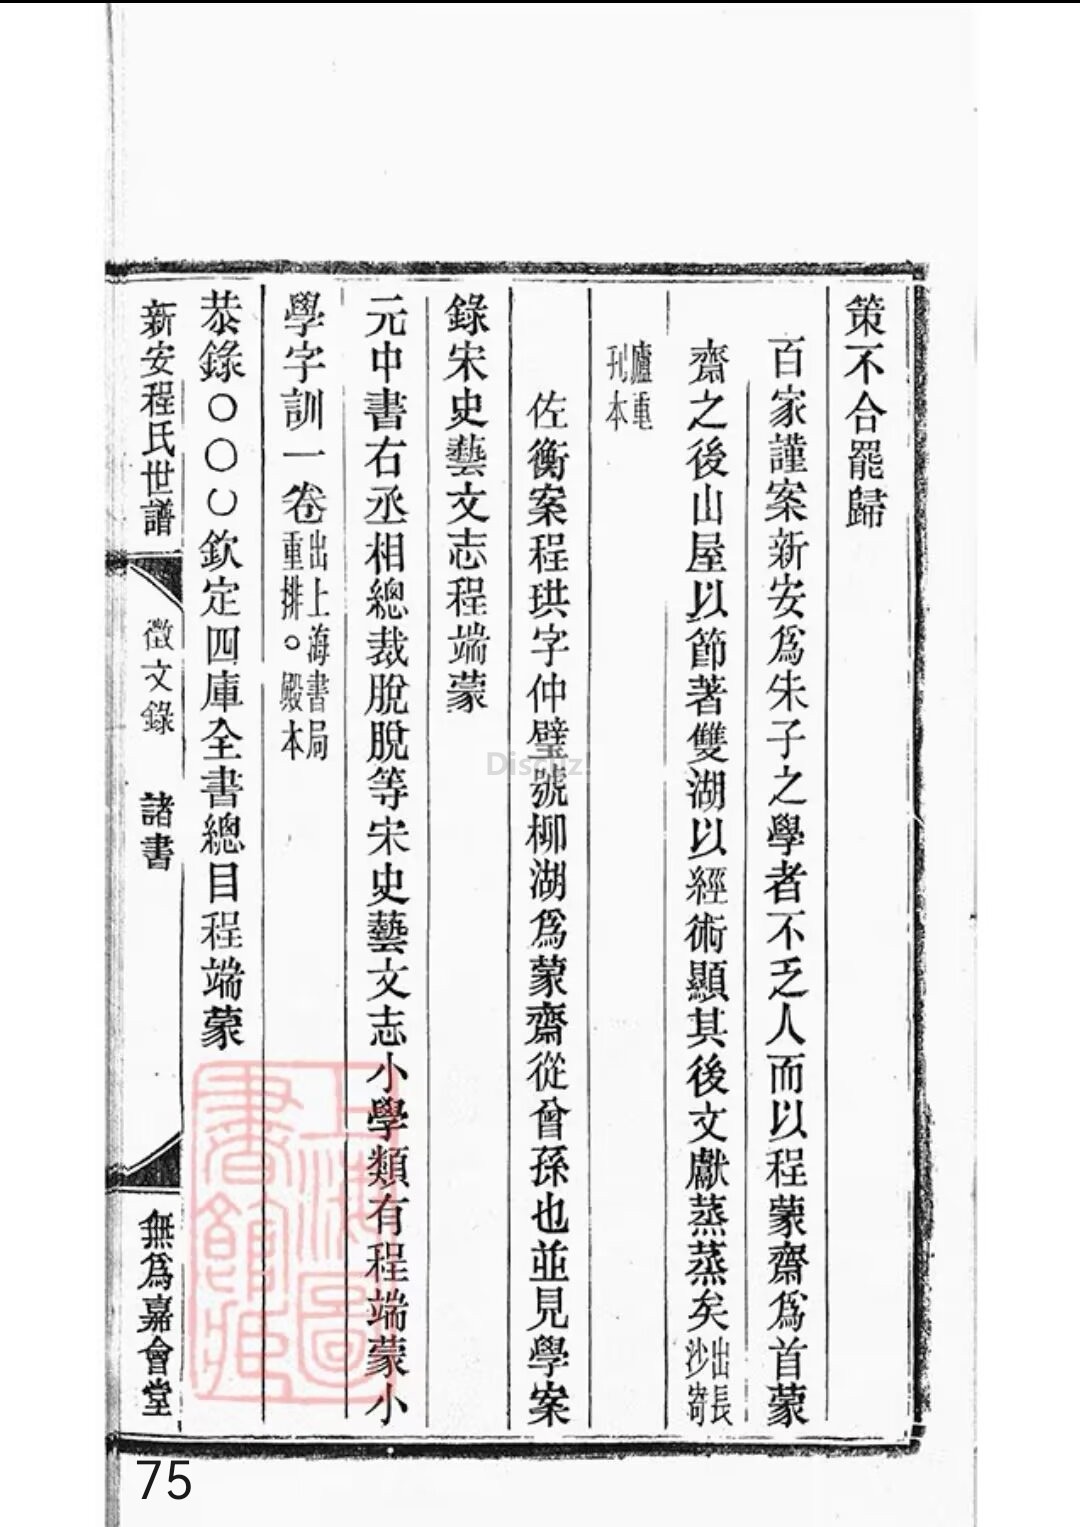 策不合罷歸
百家謹案新安爲朱子之學者不乏人而以程蒙齋爲首蒙
齋之後山屋以節著雙湖以經術顯其後文獻蒸蒸矣出長沙寄
廬重刊本
佐衡案程珙字仲璧號柳湖爲蒙齋從曾孫也並見學案
錄宋史藝文志程端蒙
元中書右丞相總裁脫脫等宋史藝文志小學類有程端蒙小
學字訓一卷出上海書局重排。殿本
恭錄○○○欽定四庫全書總目程端蒙
新安程氏世譜
徵文錄 諸書
無爲嘉會堂
上海圖書館藏
Discuz!
75